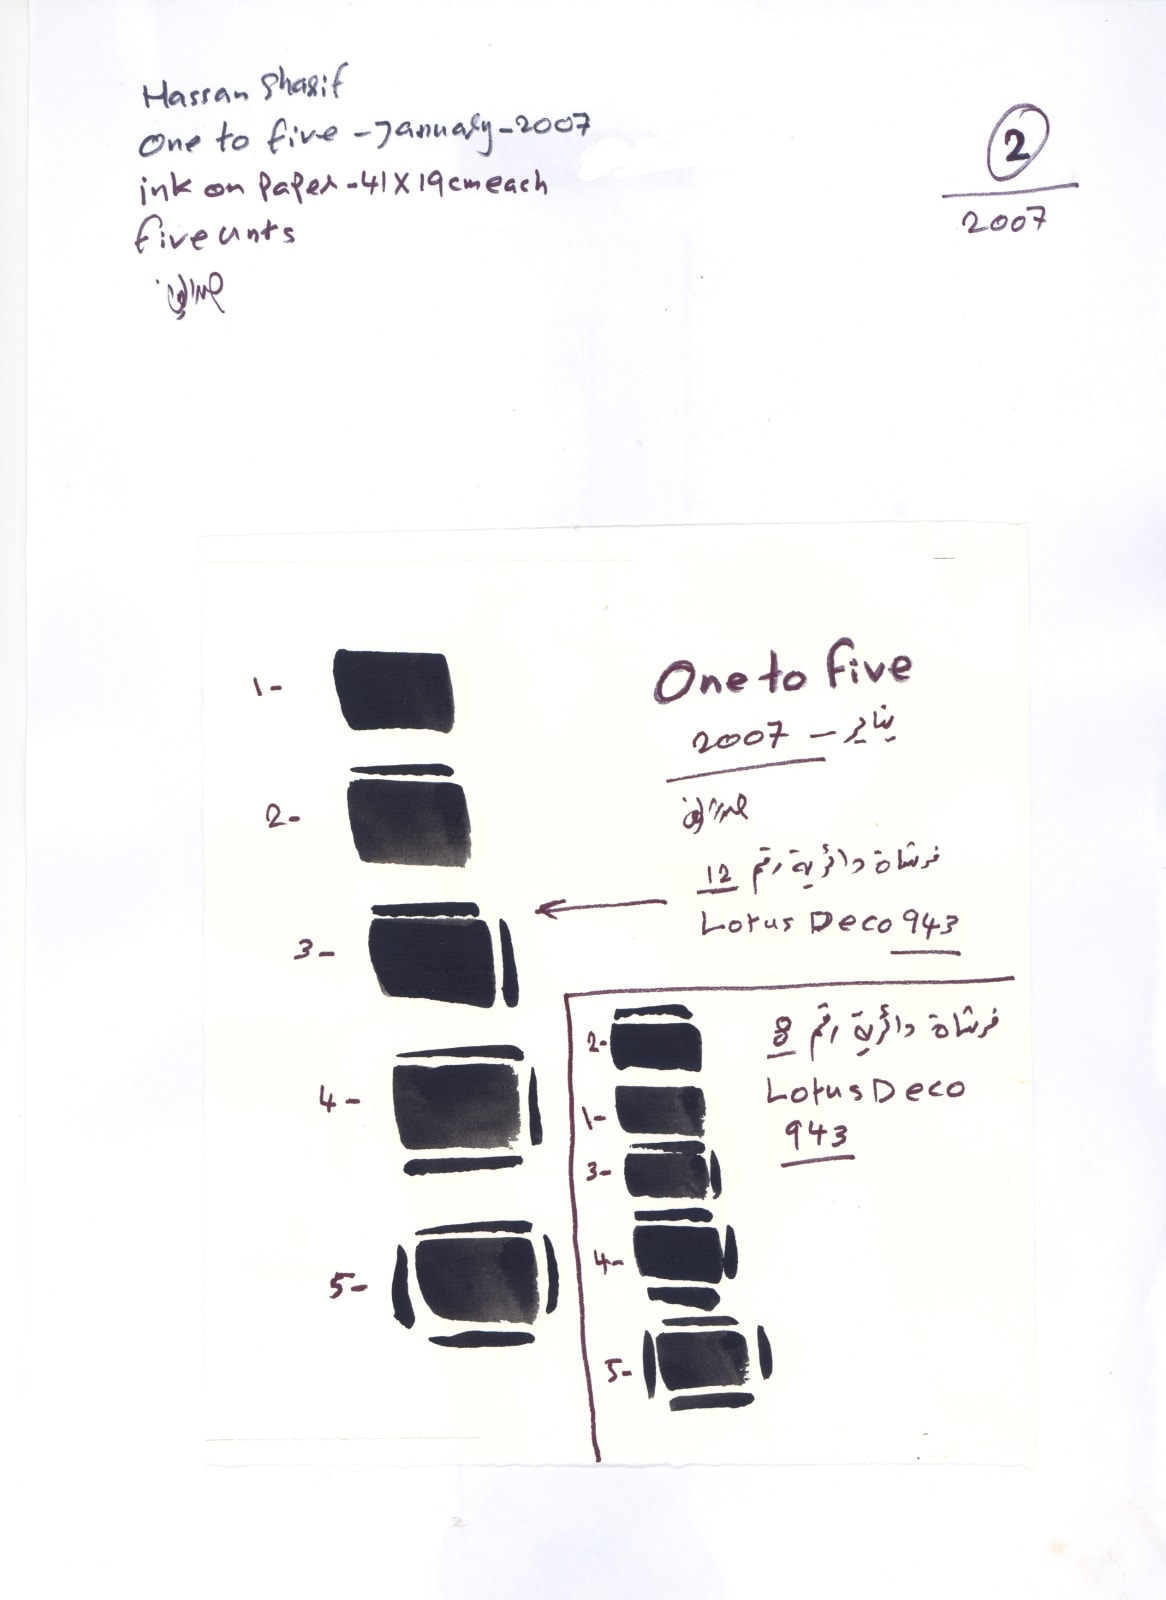 Hassan Sharif
One to five - January - 2007
ink on Paper - 41 X 19 cm each
five unts
2
2007
One to five
يناير - 2007
فرشاة دائرية رقم 12
Lotus Deco 943
1-
2-
3-
4-
5-
فرشاة دائرية رقم 8
Lotus Deco
943
2-
1-
3-
4-
5-